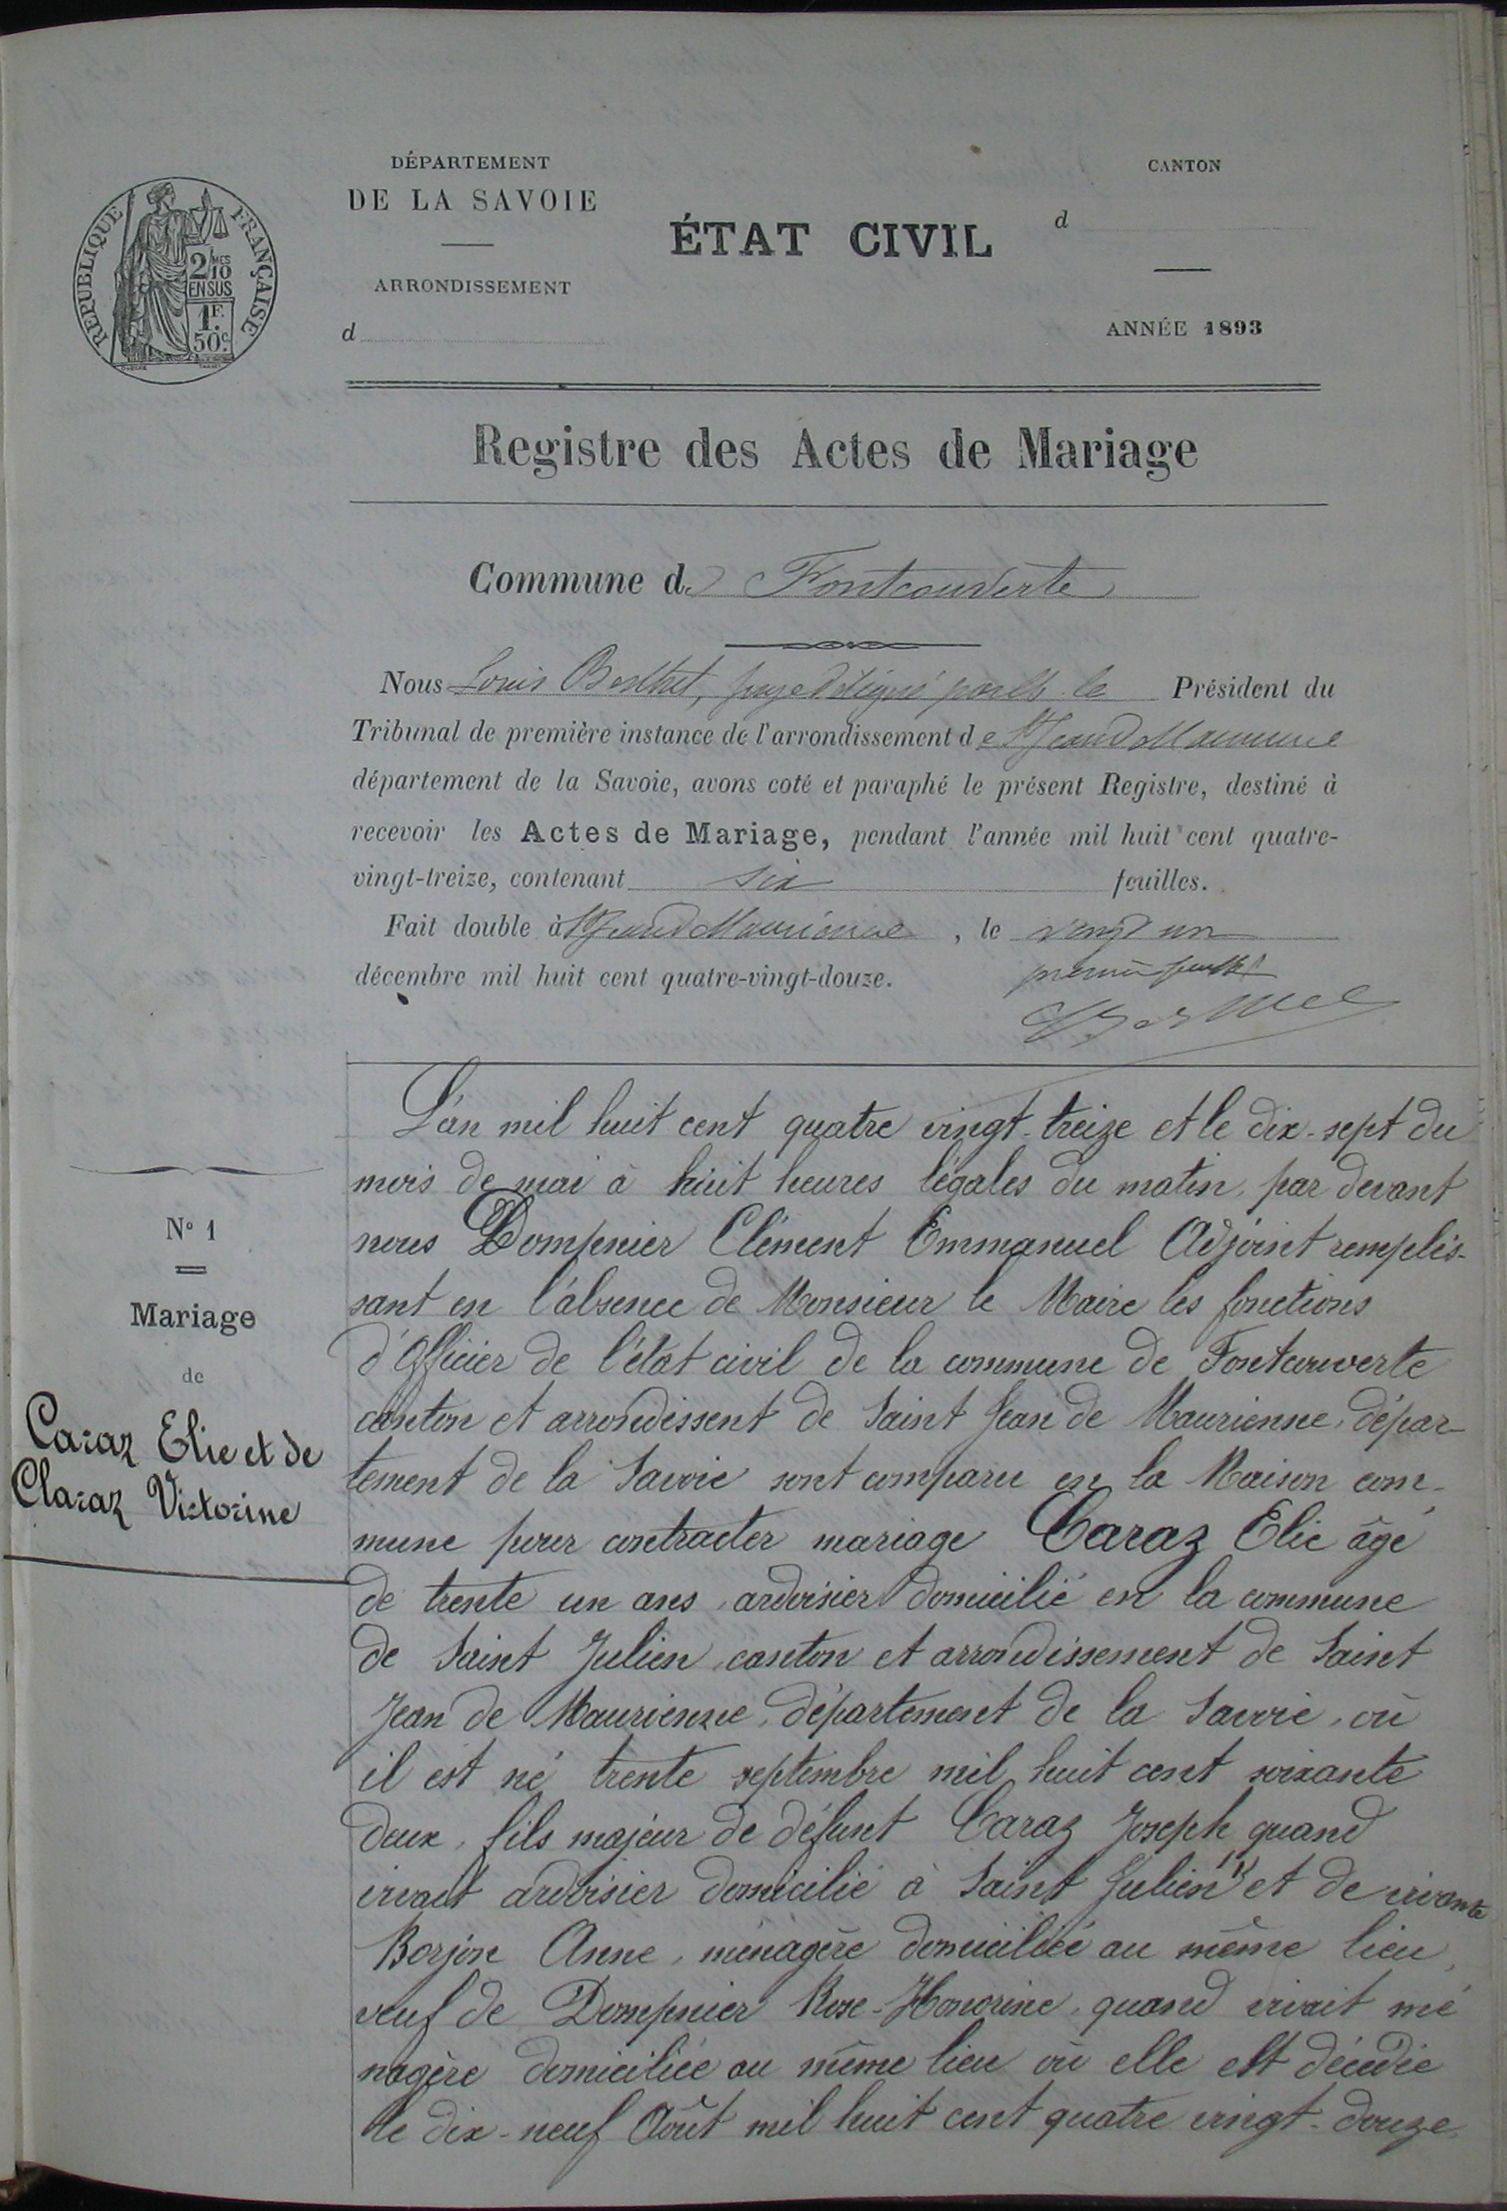 DÉPARTEMENT
DE LA SAVOIE
ARRONDISSEMENT
d
ÉTAT CIVIL
CANTON
d
ANNÉE 1893
REPUBLIQUE FRANÇAISE
2/10 MES
EN SUS
1F.
50c.
Registre des Actes de Mariage
Commune de Fontcouverte
Nous Louis Berthet, juge délégué par le Président du
Tribunal de première instance de l'arrondissement de St Jean d Maurienne
département de la Savoie, avons coté et paraphé le présent Registre, destiné à
recevoir les Actes de Mariage, pendant l'année mil huit cent quatre-
vingt-treize, contenant six feuilles.
Fait double à St Jean d Maurienne, le vingt un
décembre mil huit cent quatre-vingt-douze.
N° 1
Mariage
de
Caraz Elie et de
Claraz Victorine
L'an mil huit cent quatre vingt-treize et le dix-sept du
mois de mai à huit heures légales du matin, par devant
nous Dompnier Clément Emmanuel Adjoint remplis-
sant en l'absence de Monsieur le Maire les fonctions
d'Officier de l'état civil de la commune de Fontcouverte
canton et arrondissent de Saint Jean de Maurienne, dépar-
tement de la Savoie sont comparu en la Maison com-
mune pour contracter mariage Caraz Elie âgé
de trente un ans, ardoisier domicilié en la commune
de Saint Julien, canton et arrondissement de Saint
Jean de Maurienne, département de la Savoie, où
il est né trente septembre mil huit cent soixante
deux, fils majeur de défunt Caraz Joseph quand
vivait ardoisier domicilié à Saint Julien et de vivante
Borjon Anne, ménagère domiciliée au même lieu,
veuf de Dompnier Rose-Honorine, quand vivait mé
nagère domiciliée au même lieu où elle est décédée
le dix-neuf Août mil huit cent quatre vingt-douze,